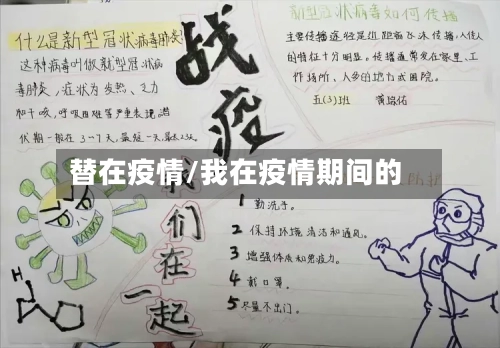 什么是新型冠状病毒肺炎
这种病毒叫做新型冠状病
毒肺炎,症状为发热、乏力
和干咳,呼吸困难等严重表现。潜
伏期一般在3~7天,最短一天,最长
战疫
我们在一起
新型冠状病毒如何传播
主要传播途径是近距离飞沫传播,人传人
的特征十分明显。传播通常发生在家里、工
作场所、人多的地方或医院。
五(3)班
替在疫情/我在疫情期间的
1 勤洗手。
2 保持环境清洁和通风。
3 增强体质和免疫力。
4 戴口罩。
5 尽量不出门。
H